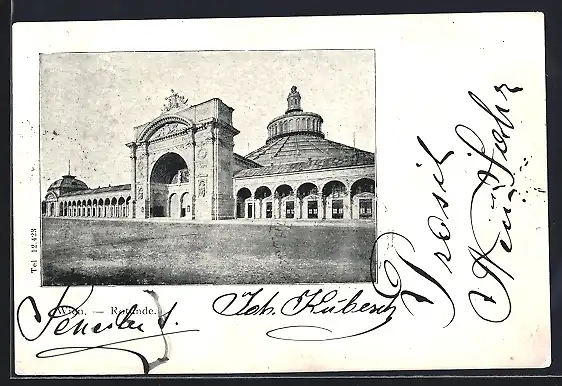 Tel 12.423
Wien. — Rotunde.
Joh. Kübeck
Prosit
Neujahr